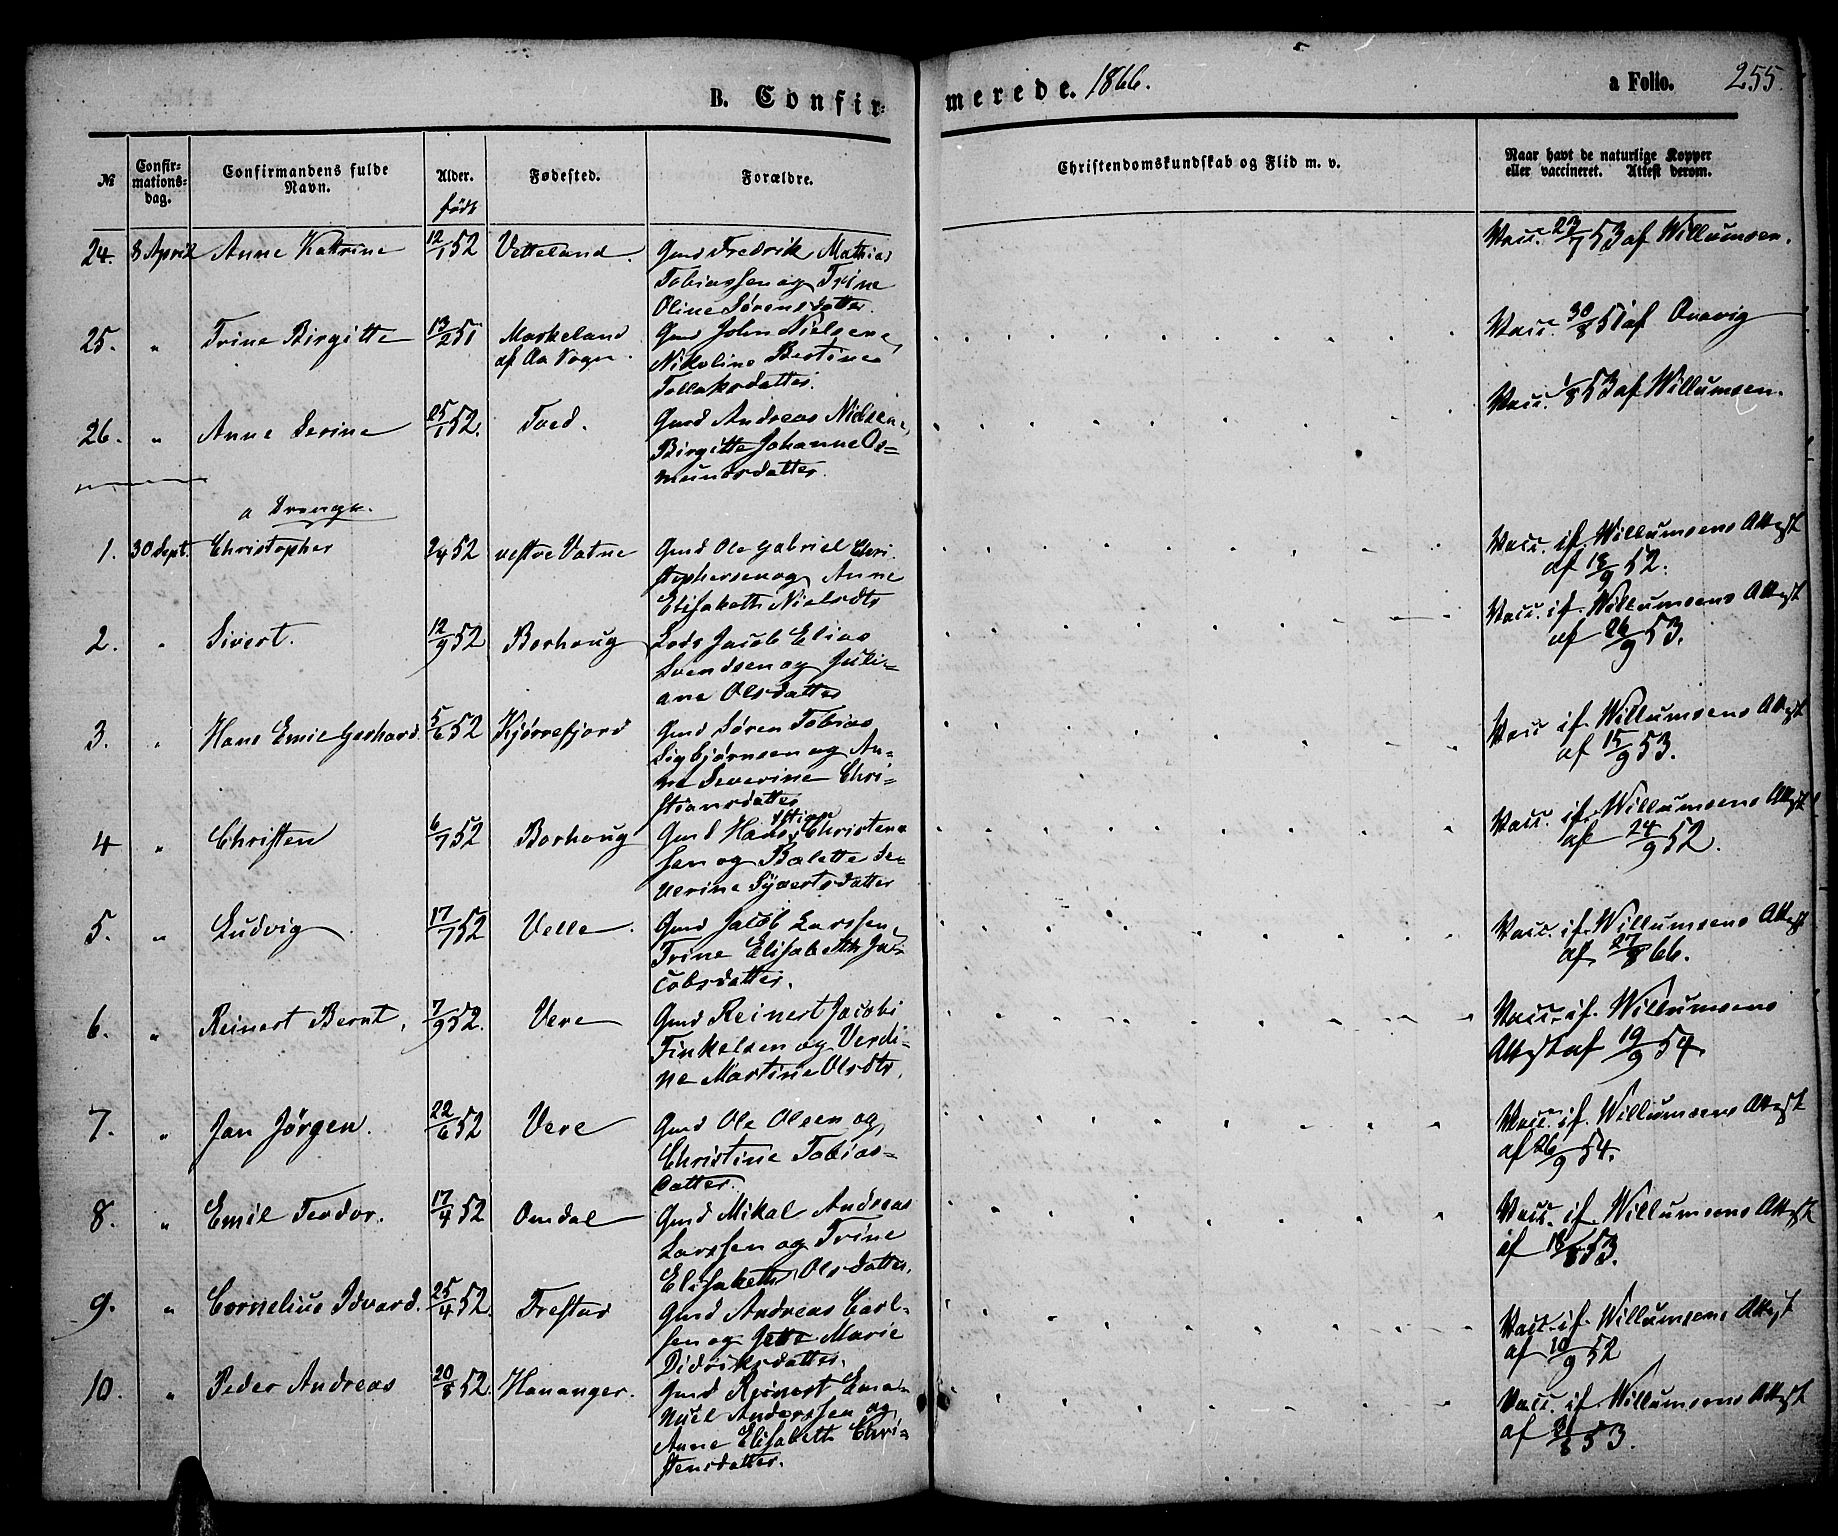 B. Confirmerede. 1866. a Folio. 255.
№ Confirmationsdag. Confirmandens fulde Navn. Alder. født Fødested. Forældre. Christendomskundskab og Flid m. v. Naar havt de naturlige Kopper eller vaccineret. Attest derom.
24. 8 April Anne Kathrine 12/1 52 Vetteland. Gmd Fredrik Mathias Vacc. 23/7 53 af Willumsen.
Tobiassen og Trine
Oline Sørensdatter
25. " Trine Birgitte 13/2 51 Maskeland Gmd John Nielsen, Vacc. 30/8 51 af
af Aa Sogn. Nikoline Bertine
Tollaksdatter.
26. " Anne Serine 25/1 52. Foed. Gmd Andreas Nielsen, Vacc. 1/8 53 af Willumsen.
Birgitte Johanne Os-
mundsdatter.
a Drenge.
1. 30 Sept. Christopher 2/4 52 vestre Vatne Gmd Ole Gabriel Chri- Vacc. if. Willumsens Attest
stophersen og Anne af 18/9 52.
Elisabeth Nielsdtr
2. " Sivert. 12/9 52 Borhoug Lods Jacob Elias Vacc. if. Willumsens Attest
Svendsen og Juli- af 26/9 53.
ane Olsdatter
3. " Hans Emil Gerhard 5/6 52 Kjørrefjord Gmd Søren Tobias Vacc if. Willumsens Attest
Sigbjørnsen og An- af 15/9 53.
ne Severine Chri-
stiansdatter
4 " Christen 6/7 52 Borhoug Gmd Hans Christen- Vacc. if. Willumsens Attest
sen og Balette Se- af 24/9 52.
verine Syvertsdatter
5. " Ludvig 17/7 52 Velle. Gmd Jacob Larssen, Vacc. if. Willumsens Attest
Trine Elisabeth Ja- af 27/8 66.
cobsdatter.
6. " Reinert Bernt, 7/9 52. Vere Gmd Reinert Jacobi Vacc. if. Willumsens
Finkelsen og Verdi- Attest af 19/9 54.
ne Martine Olsdtr.
7. " Jan Jørgen. 22/6 52 Vere Gmd Ole Olsen og Vacc. if. Willumsens Attest
Christine Tobias- af 26/9 54.
datter.
8. " Emil Teodor. 17/4 52 Omdal Gmd Mikal Andreas Vacc. if. Willumsens Attest
Larssen og Trine af 18/8 53.
Elisabeth Olsdatter.
9. " Cornelius Edvard. 25/4 52. Frestad Gmd Andreas Carl- Vacc. if. Willumsens Attest
sen og Jette Marie af 10/9 52
Didriksdatter.
10. " Peder Andreas 20/8 52. Hananger. Gmd Rejnert Ema- Vacc. if. Willumsens Attest
nuel Anderssen og af 53.
Anne Elisabeth Chri-
stensdatter.